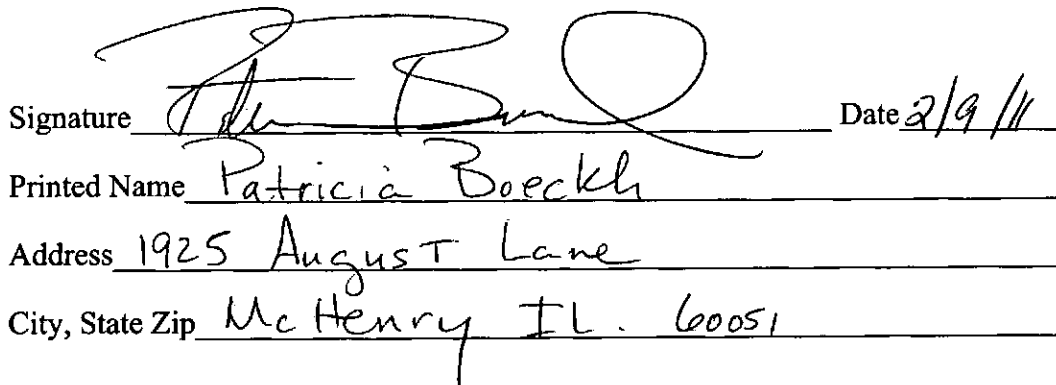 Signature Date 2/9/11
Printed Name Patricia Boeckh
Address 1925 August Lane
City, State Zip McHenry IL. 60051